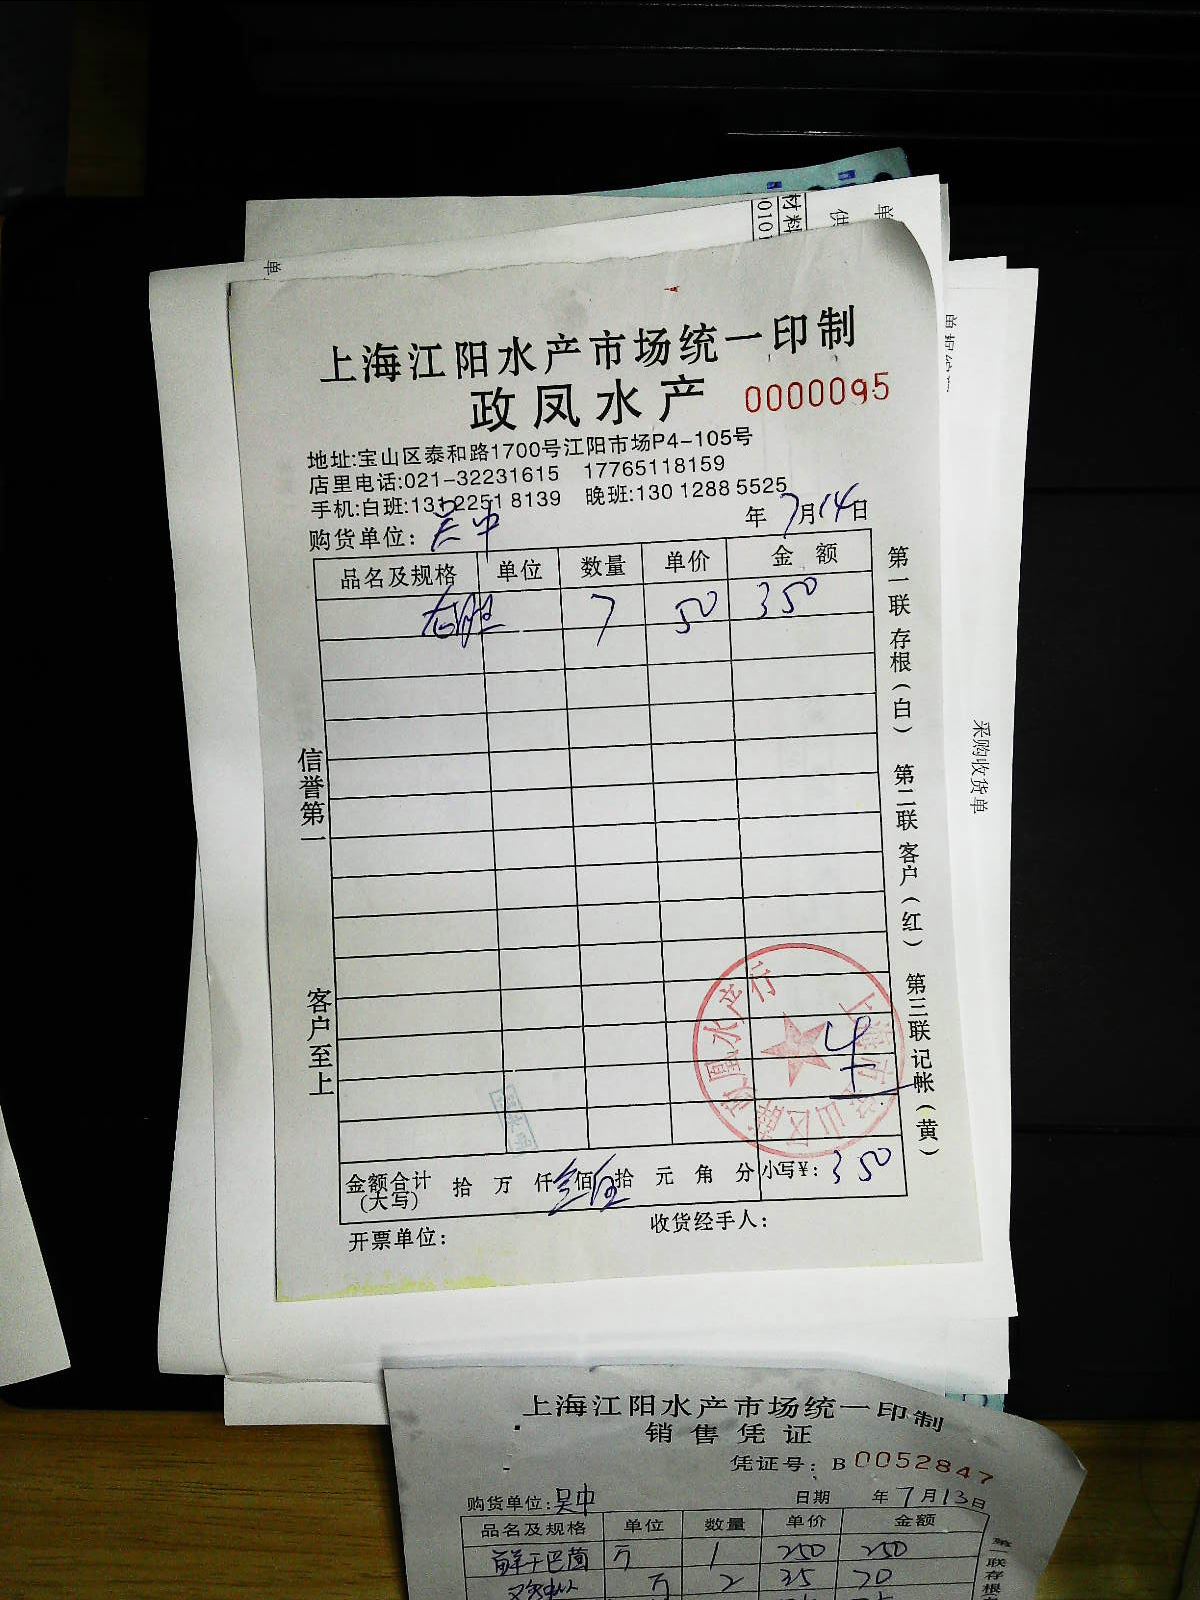 材料
0101
供
单
单
上海江阳水产市场统一印制
政凤水产 0000095
地址:宝山区泰和路1700号江阳市场P4-105号
店里电话:021-32231615 17765118159
手机:白班:131 2251 8139 晚班:130 1288 5525
购货单位: 吴中 年 7月14日
品名及规格 单位 数量 单价 金额
7 50 350
信誉第一
客户至上
第一联存根(白) 第二联客户(红) 第三联记帐(黄)
采购收货单
金额合计(大写) 拾 万 仟 叁佰 拾 元 角 分 小写¥: 350
开票单位: 收货经手人:
上海江阳水产市场统一印制
销售凭证
凭证号: B 0052847
购货单位: 吴中 日期 年 7月13日
品名及规格 单位 数量 单价 金额
1 250 250
2 35 70
第一联存根